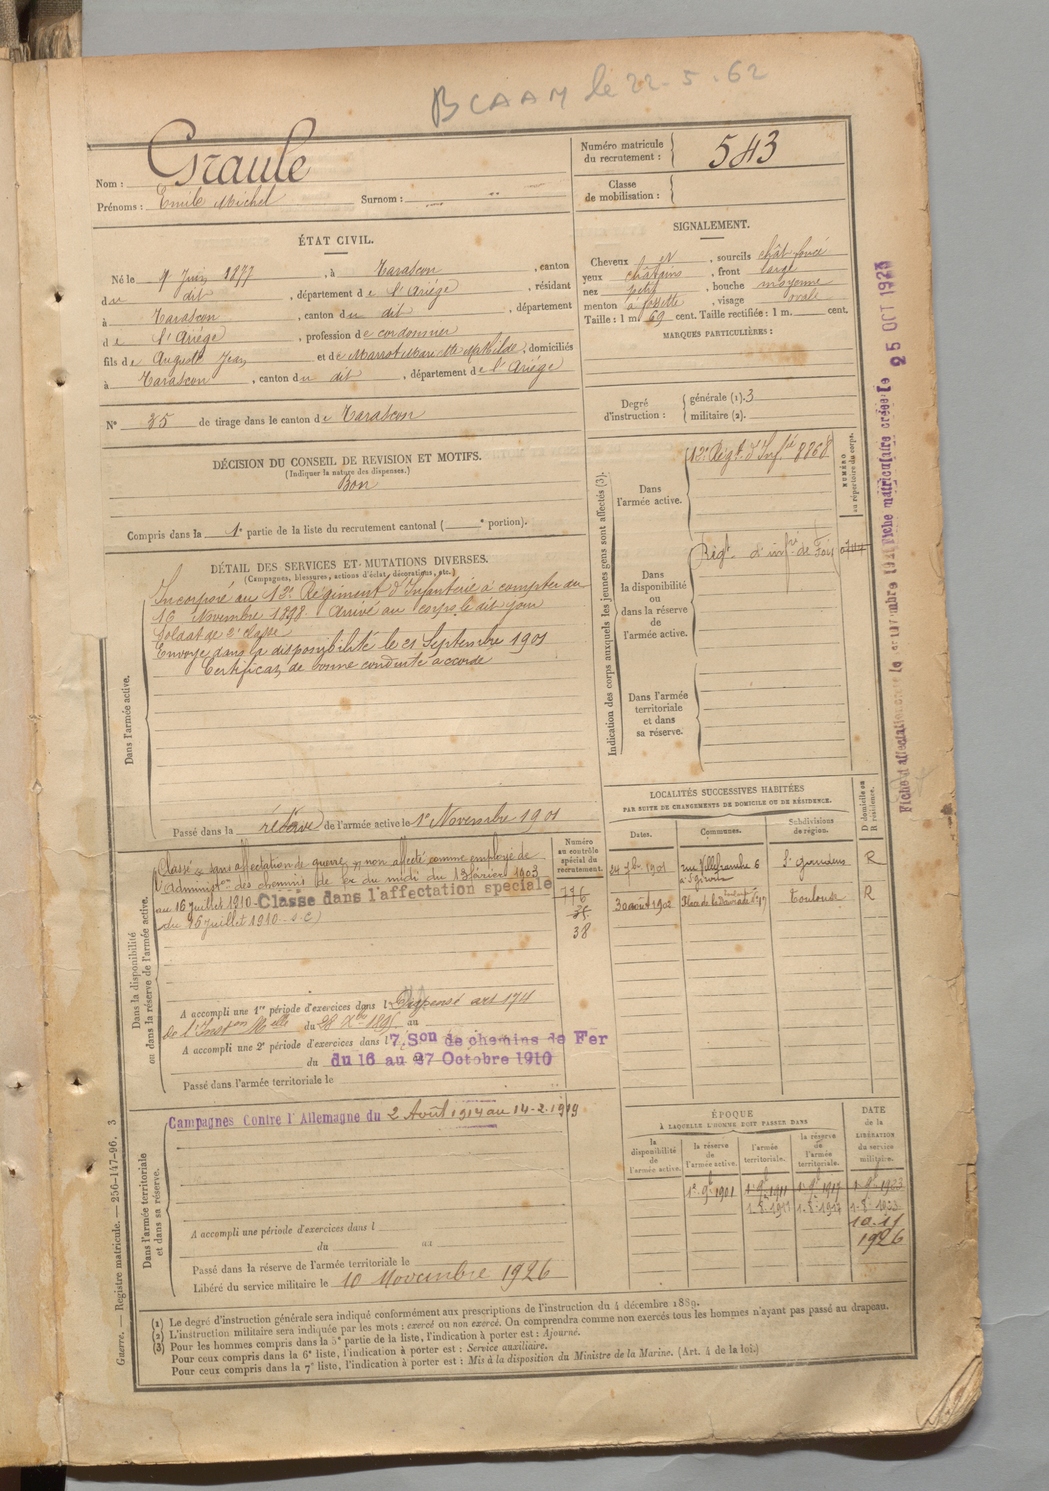 BCAAM le 22-5.62
Nom : Graule
Prénoms : Emile Michel Surnom :
Numéro matricule
du recrutement : 543
Classe
de mobilisation :
ÉTAT CIVIL.
Né le 9 Juin 1877, à Tarascon, canton
du dit, département de l'Ariége, résidant
à Tarascon, canton du dit, département
de l'Ariége, profession de cordonnier
fils de Auguste Jean et de Marrot Marie Mathilde, domiciliés
à Tarascon, canton du dit, département de l'Ariége
N° 35 de tirage dans le canton de Tarascon
SIGNALEMENT.
Cheveux et, sourcils chât foncé
yeux châtains, front large
nez petit, bouche moyenne
menton à fossette, visage ovale
Taille : 1 m. 69 cent. Taille rectifiée : 1 m. cent.
MARQUES PARTICULIÈRES :
Degré
d'instruction :
générale (1). 3
militaire (2).
DÉCISION DU CONSEIL DE REVISION ET MOTIFS.
(Indiquer la nature des dispenses.)
Bon
Compris dans la 1e partie de la liste du recrutement cantonal ( e portion).
DÉTAIL DES SERVICES ET MUTATIONS DIVERSES.
(Campagnes, blessures, actions d'éclat, décorations, etc.)
Dans l'armée active.
Incorporé au 12e Régiment d'Infanterie à compter du
16 Novembre 1898. Arrivé au corps le dit jour
Soldat de 2e classe
Envoyé dans la disponibilité le 21 Septembre 1901
Certificat de bonne conduite accordé
Passé dans la réserve de l'armée active le 1er Novembre 1901
Indication des corps auxquels les jeunes gens sont affectés (3).
NUMÉRO
au répertoire du corps.
Dans
l'armée active.
12e Régt d'Infie 8868
Dans
la disponibilité
ou
dans la réserve
de
l'armée active.
Régt d'infie de Foix
Dans l'armée
territoriale
et dans
sa réserve.
Fiche matriculaire créée le 25 OCT 1925
Dans la disponibilité
ou dans la réserve de l'armée active.
Classé sans affectation de guerre, non affecté comme employé de
l'administon des chemins de fer du midi du 13 février 1903
au 16 juillet 1910. Classé dans l'affectation spéciale
du 16 juillet 1910 - S.C)
Numéro
au contrôle
spécial du
recrutement.
776
35
38
A accompli une 1re période d'exercices dans l Dispensé art 174
de l'Inston Melle du 28 Xbre 1895 au
A accompli une 2e période d'exercices dans l 7 Son de chemins de Fer
du 16 au 27 Octobre 1910
Passé dans l'armée territoriale le
LOCALITÉS SUCCESSIVES HABITÉES
PAR SUITE DE CHANGEMENTS DE DOMICILE OU DE RÉSIDENCE.
Dates. Communes. Subdivisions
de région. D domicile ou
R résidence.
24 7bre 1901 rue Villefranche 6 St Gaudens R
à St Girons
30 août 1902 Toulouse R
Dans l'armée territoriale
et dans sa réserve.
Campagnes Contre l'Allemagne du 2 Août 1914 au 14-2.1919
A accompli une période d'exercices dans l
du au
Passé dans la réserve de l'armée territoriale le
Libéré du service militaire le 10 Novembre 1926
ÉPOQUE
À LAQUELLE L'HOMME DOIT PASSER DANS
DATE
de la
LIBÉRATION
du service
militaire.
la
disponibilité
de
l'armée active.
la réserve
de
l'armée active.
l'armée
territoriale.
la réserve
de
l'armée
territoriale.
1er 9bre 1901 1er 9bre 1911 1er 9bre 1917 1er 9bre 1923
10.11
1926
(1) Le degré d'instruction générale sera indiqué conformément aux prescriptions de l'instruction du 4 décembre 1889.
(2) L'instruction militaire sera indiquée par les mots : exercé ou non exercé. On comprendra comme non exercés tous les hommes n'ayant pas passé au drapeau.
(3) Pour les hommes compris dans la 5e partie de la liste, l'indication à porter est : Ajourné.
Pour ceux compris dans la 6e liste, l'indication à porter est : Service auxiliaire.
Pour ceux compris dans la 7e liste, l'indication à porter est : Mis à la disposition du Ministre de la Marine. (Art. 4 de la loi.)
Guerre. — Registre matricule. — 256-147-96. 3